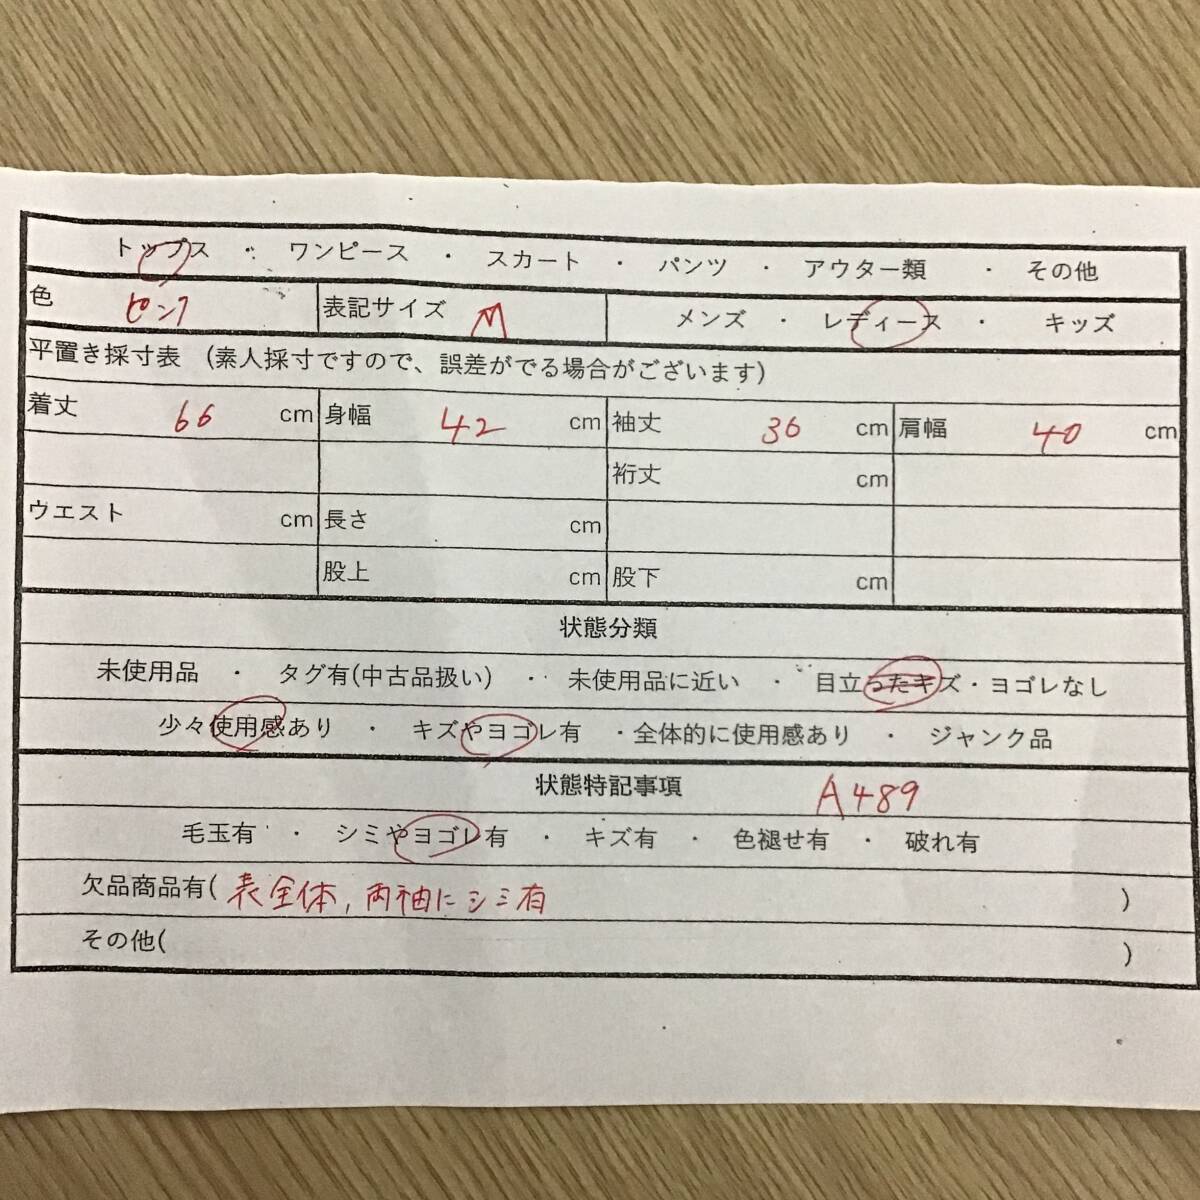 トップス ・ ワンピース ・ スカート ・ パンツ ・ アウター類 ・ その他
色 ピンク 表記サイズ M メンズ ・ レディース ・ キッズ
平置き採寸表 (素人採寸ですので、誤差がでる場合がございます)
着丈 66 cm 身幅 42 cm 袖丈 36 cm 肩幅 40 cm
裄丈 cm
ウエスト cm 長さ cm
股上 cm 股下 cm
状態分類
未使用品 ・ タグ有(中古品扱い) ・ 未使用品に近い ・ 目立ったキズ・ヨゴレなし
少々使用感あり ・ キズやヨゴレ有 ・全体的に使用感あり ・ ジャンク品
状態特記事項 A489
毛玉有 ・ シミやヨゴレ有 ・ キズ有 ・ 色褪せ有 ・ 破れ有
欠品商品有( 表全体, 両袖にシミ有 )
その他( )